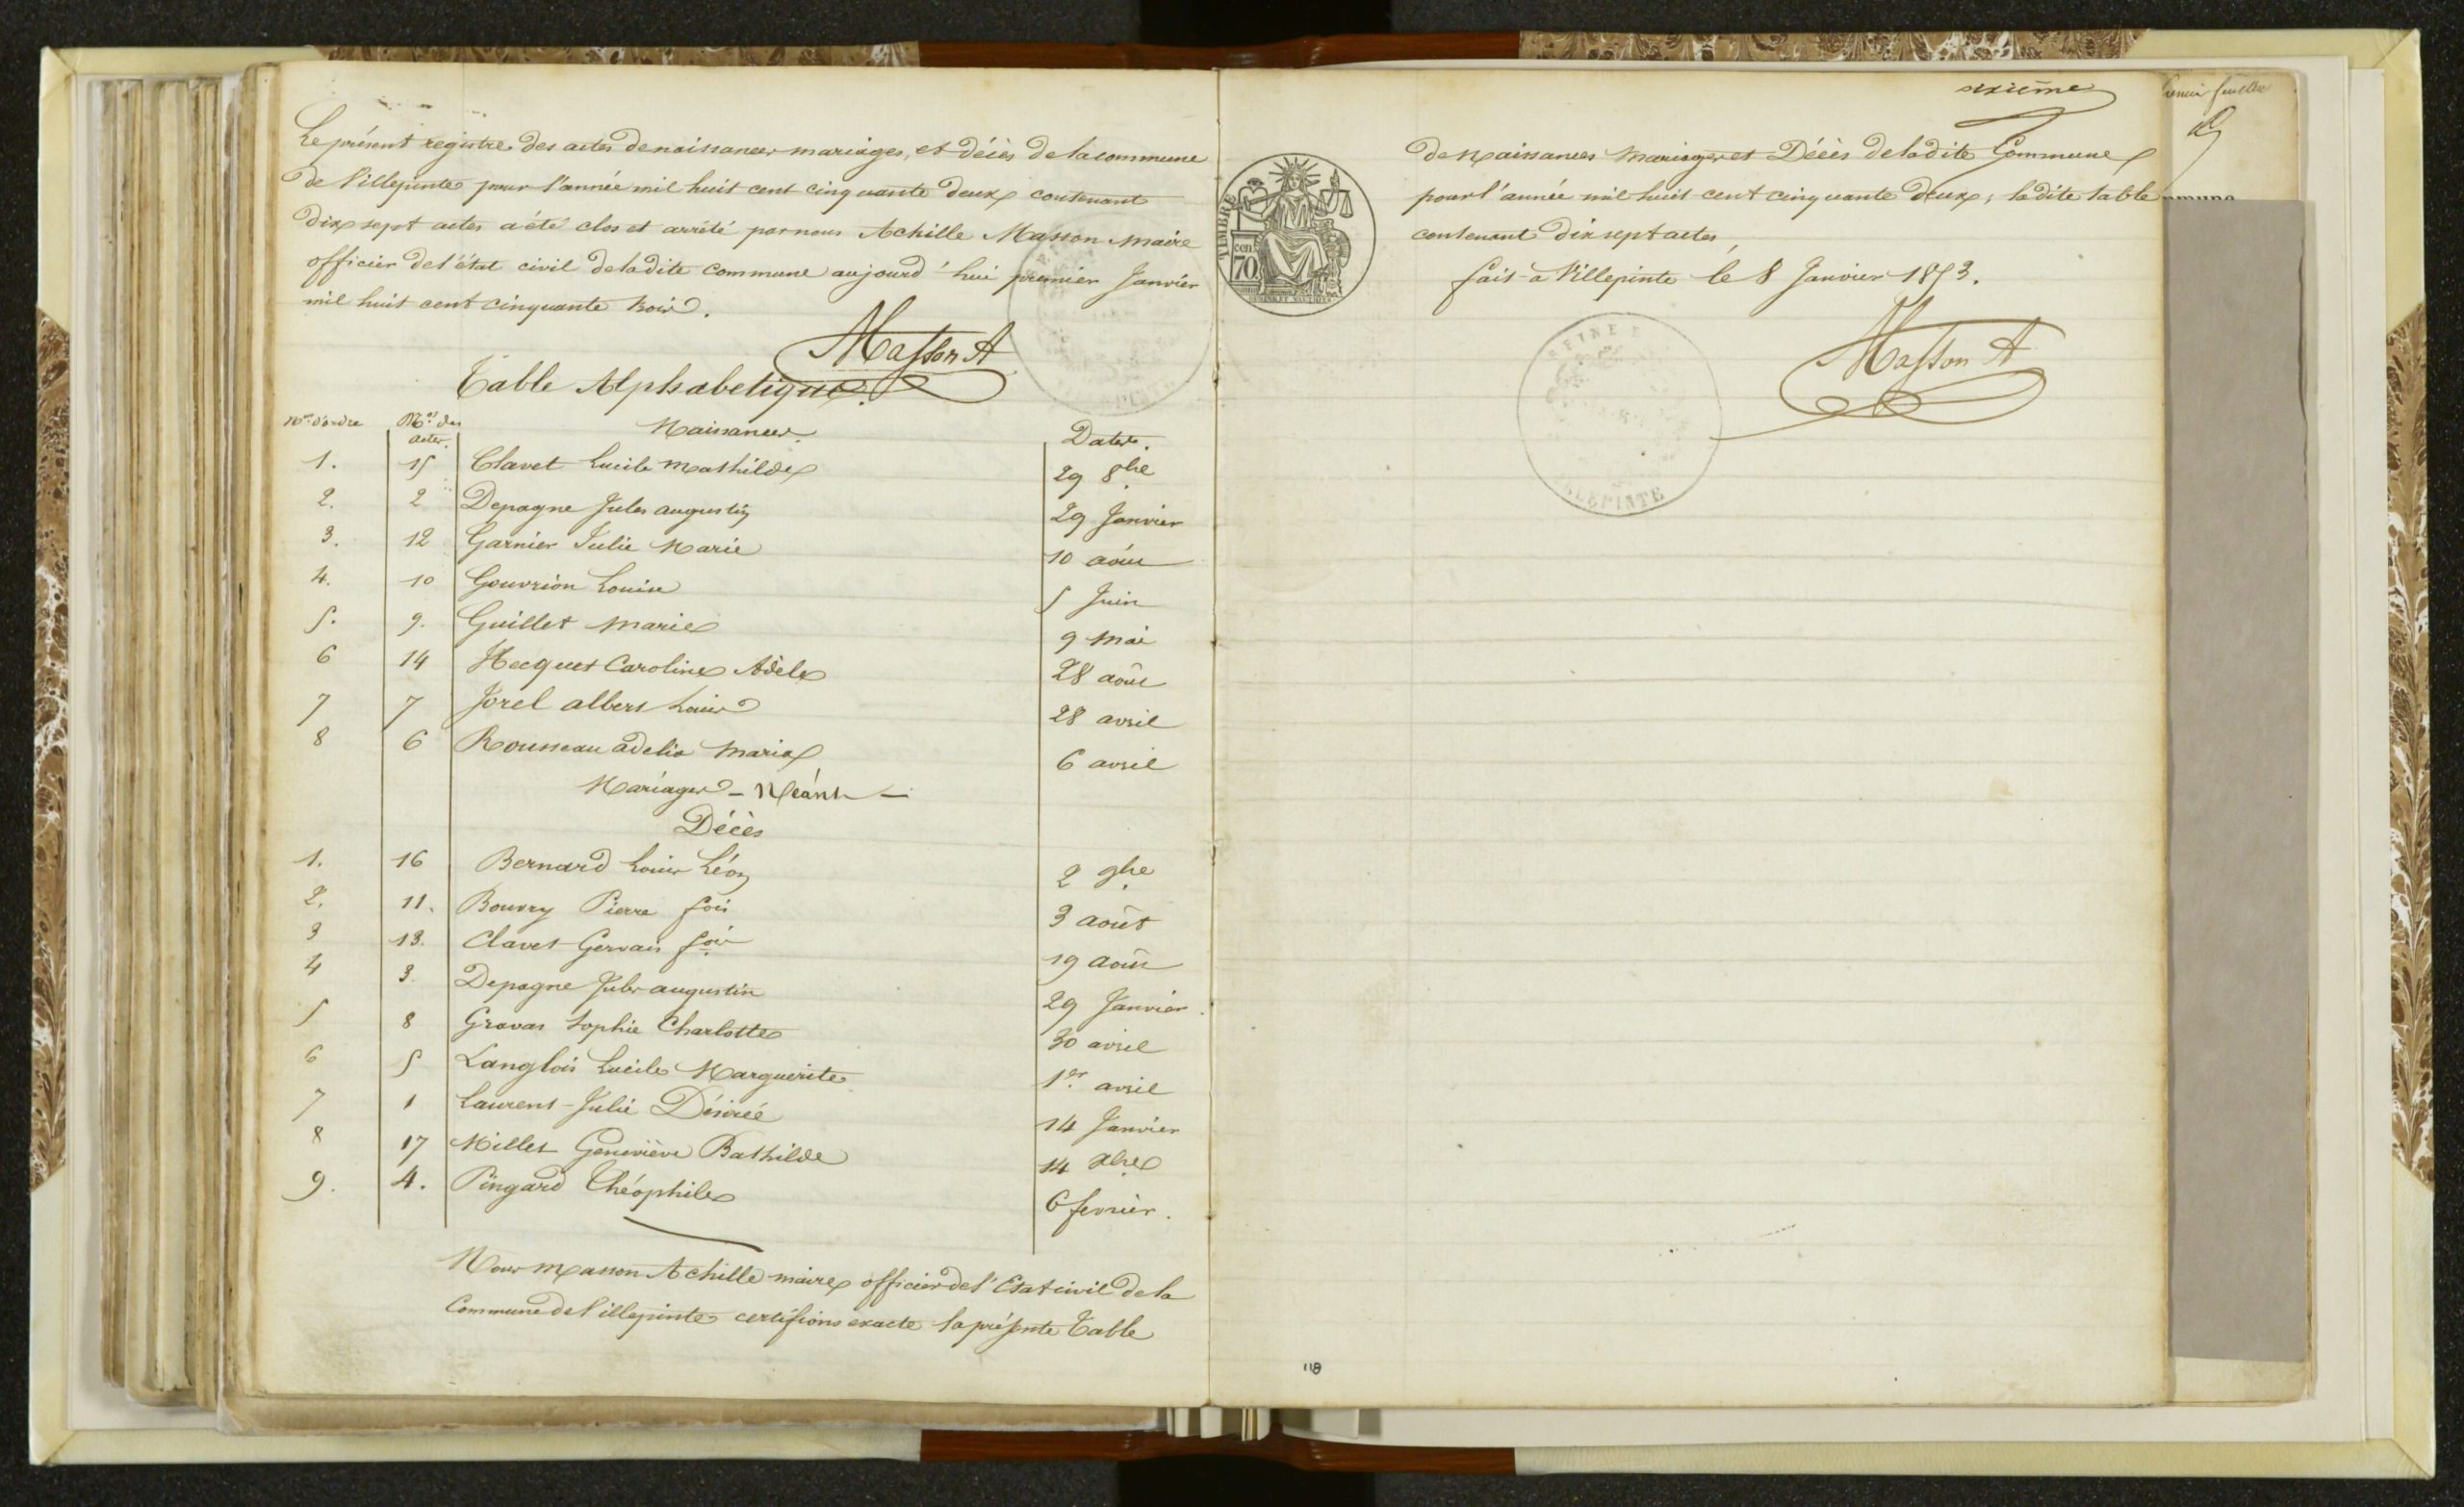 Le présent registre des actes de naissances mariages, et décès de la commune
de Villepinte pour l'année mil huit cent cinquante deux contenant
dix sept actes a été clos et arrêté par nous Achille Masson Maire
officier de l'état civil de la dite commune aujourd'hui premier Janvier
mil huit cent cinquante trois.
Masson A
Table Alphabétique
Nos d'ordre Nos des actes. Naissances. Dates.
1. 15 Clavet Lucile Mathilde 29 8bre
2. 2 Depagne Jules augustin 29 Janvier
3. 12 Garnier Julie Marie 10 août
4. 10 Gouvrion Louise 5 Juin
5. 9. Guillet Marie 9 Mai
6 14 Hecquet Caroline Adèle 28 août
7 7 Jorel albert Louis 28 avril
8 6 Rousseau adelia Maria 6 avril
Mariages - Néant -
Décès
1. 16 Bernard Louis Léon 2 9bre
2. 11. Bouvry Pierre fois 3 août
3 13. Clavet Gervais fois 19 août
4 3. Depagne Jules augustin 29 Janvier
5 8 Gravas Sophie Charlotte 30 avril
6 5 Langlois Lucile Marguerite 1er avril
7 1 Laurent Julie Désirée 14 Janvier
8 17 Millet Geneviève Bathilde 14 Xbre
9. 4. Pingard Théophile 6 fevrier.
Nous Masson Achille maire officier de l'Etat civil de la
Commune de Villepinte certifions exacte la présente Table
sixième
de Naissances Mariages et Décès de la dite Commune
pour l'année mil huit cent cinquante deux; la dite table
contenant dix sept actes
fait à Villepinte le 8 Janvier 1853.
Masson A
TIMBRE
cen
70
SEINE E
LEPINTE
118
feuillet
mmune